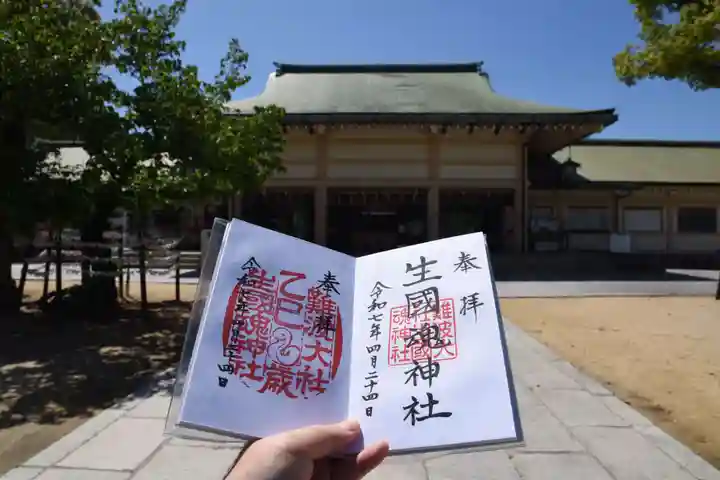 奉拝
生國魂神社
難波大社
生國魂神社
令和七年四月二十四日
奉拝
難波大社
乙巳歳
生國魂神社
令和七年四月二十四日